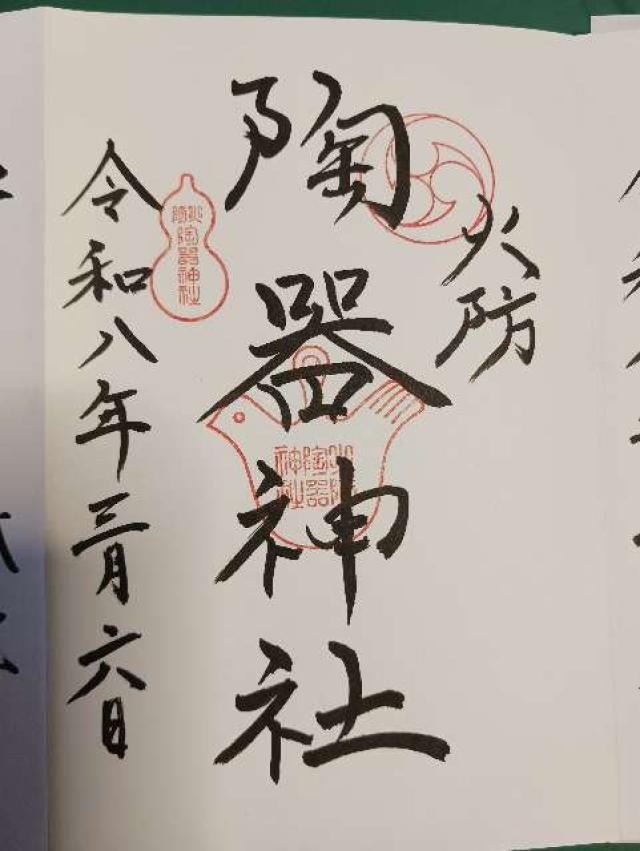 火防
陶器神社
令和八年三月六日
火防
陶器神社
火防
陶器
神社